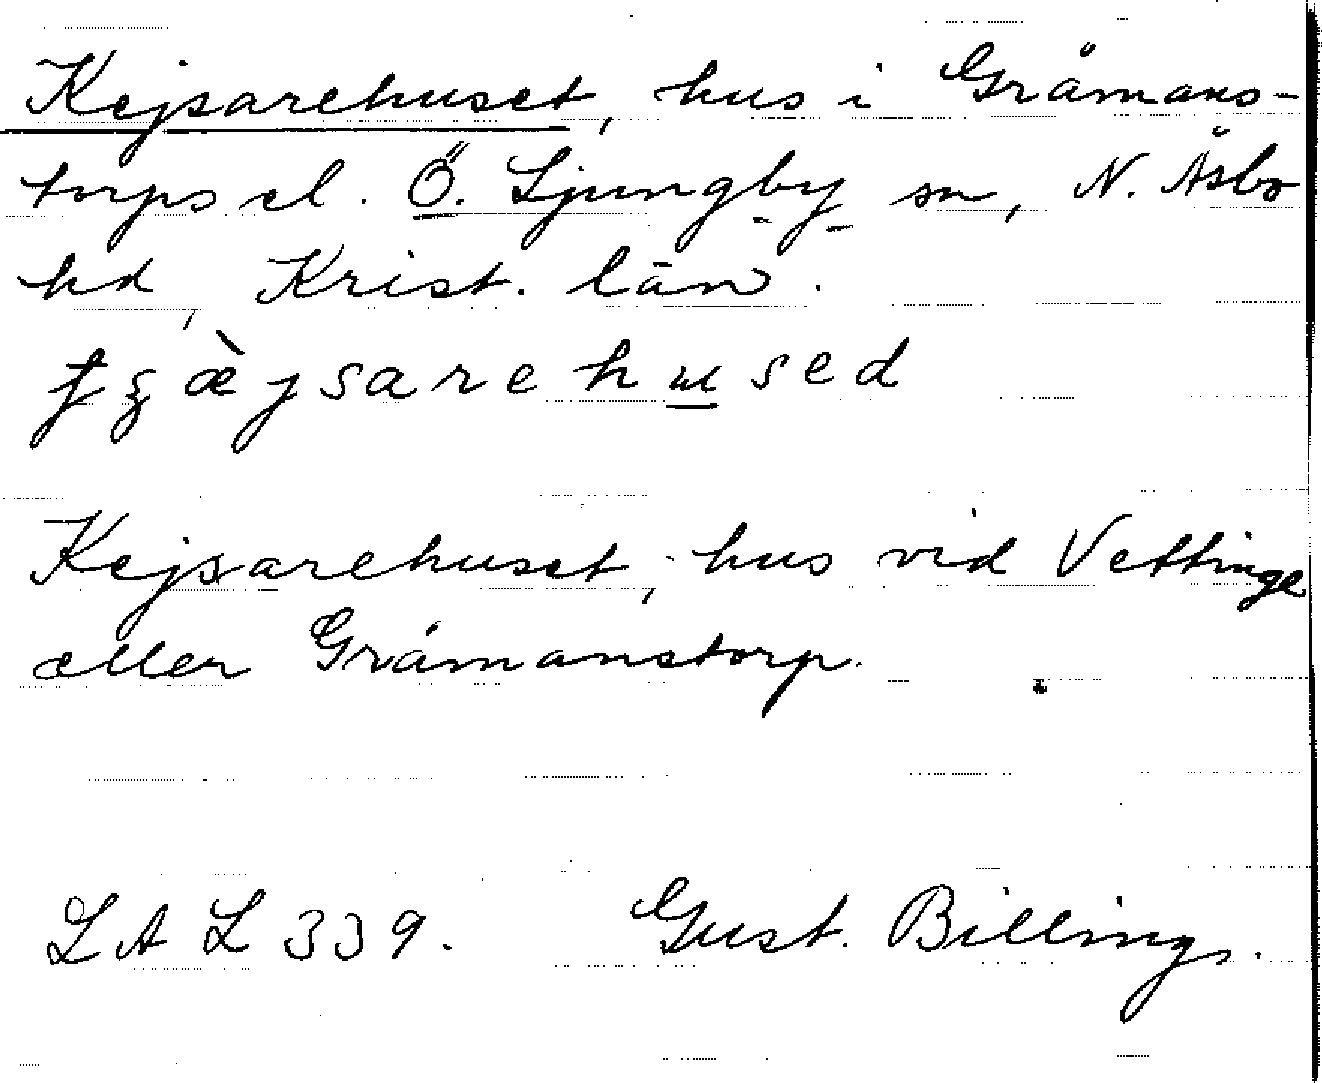 Kejsarehuset, hus i Gråmans-
torps el. Ö. Ljungby sn, N. Åsbo
hd, Krist. län.
æ̀jsarehused
Kejsarehuset, hus vid Vettinge
eller Gråmanstorp.
LAL 339. Gust. Billing.